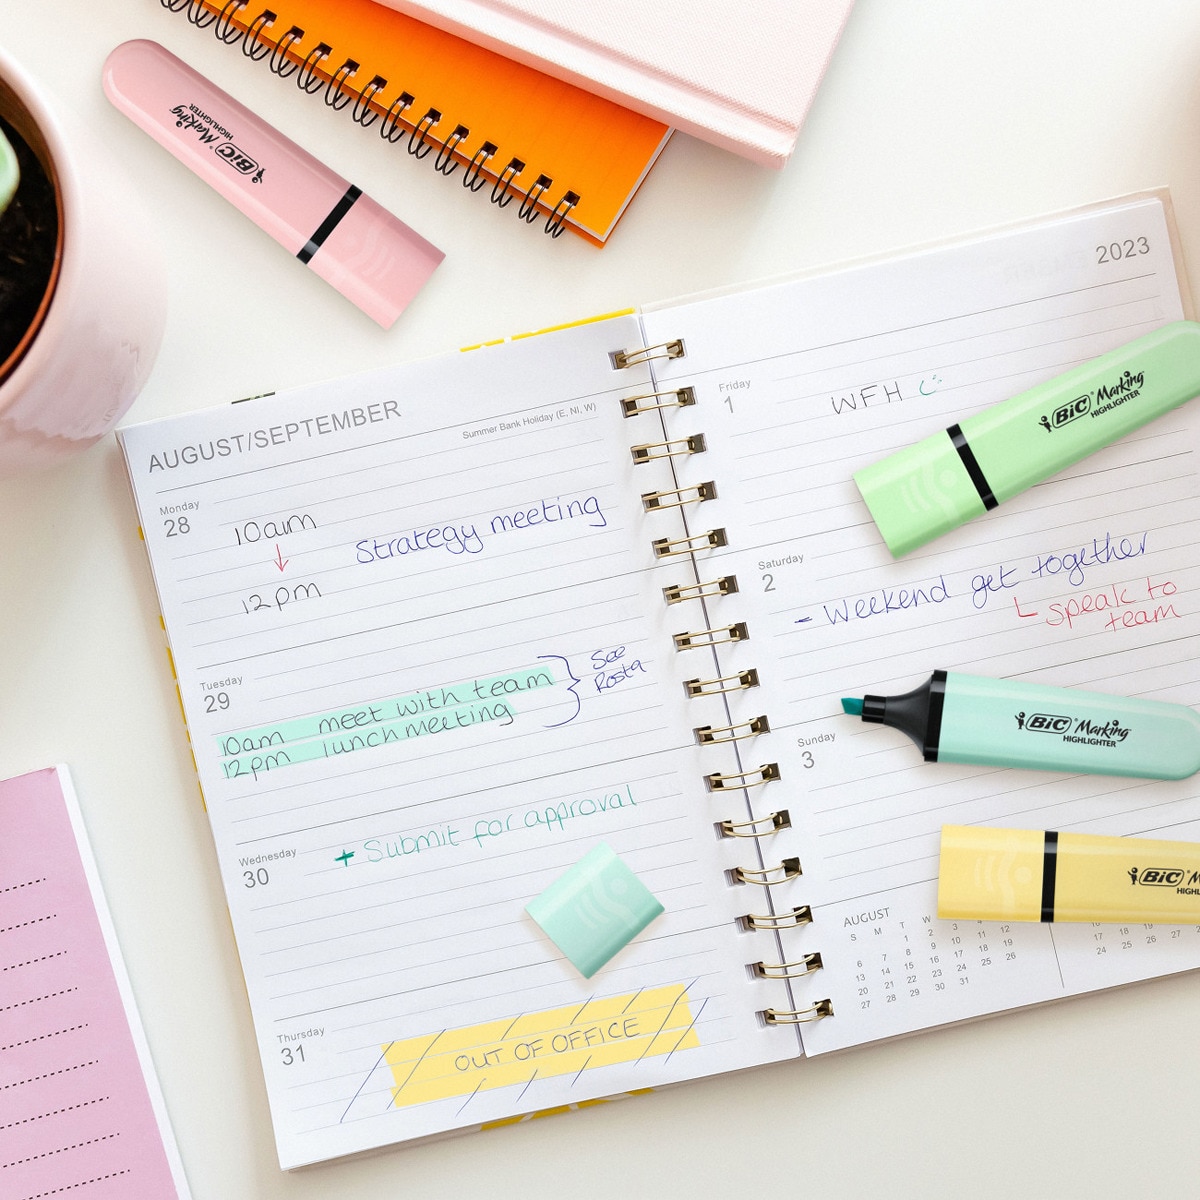 BiC® Marking
HIGHLIGHTER
AUGUST/SEPTEMBER
Summer Bank Holiday (E, NI, W)
Monday
28
10am
Strategy meeting
12pm
Tuesday
29
10am meet with team
12pm lunch meeting
See
Rosta
Wednesday
30
+ Submit for approval
Thursday
31
OUT OF OFFICE
2023
Friday
1
WFH
BiC® Marking
HIGHLIGHTER
Saturday
2
- Weekend get together
speak to
team
BiC® Marking
HIGHLIGHTER
Sunday
3
BiC® M
HIGHL
AUGUST
S M T W
1 2 3 4 5
6 7 8 9 10 11 12
13 14 15 16 17 18 19
20 21 22 23 24 25 26
27 28 29 30 31
17 18 19 20 21
24 25 26 27 28